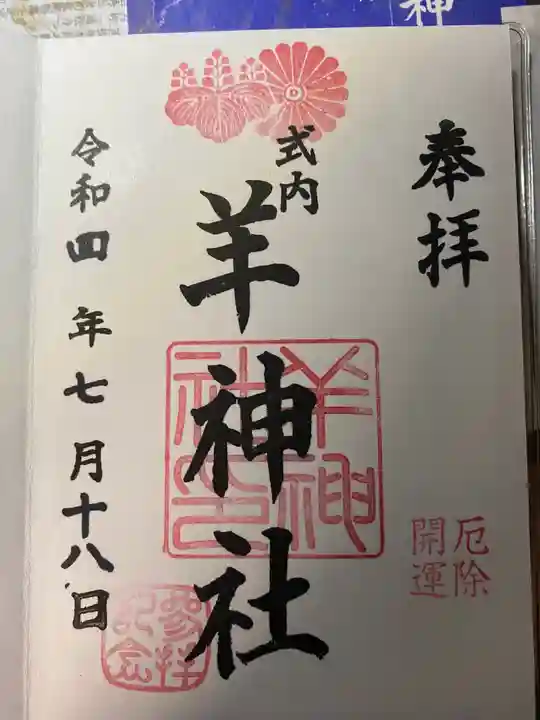 神
奉拝
式内
羊神社
令和四年七月十八日
羊神
社印
厄除
開運
参拝
記念